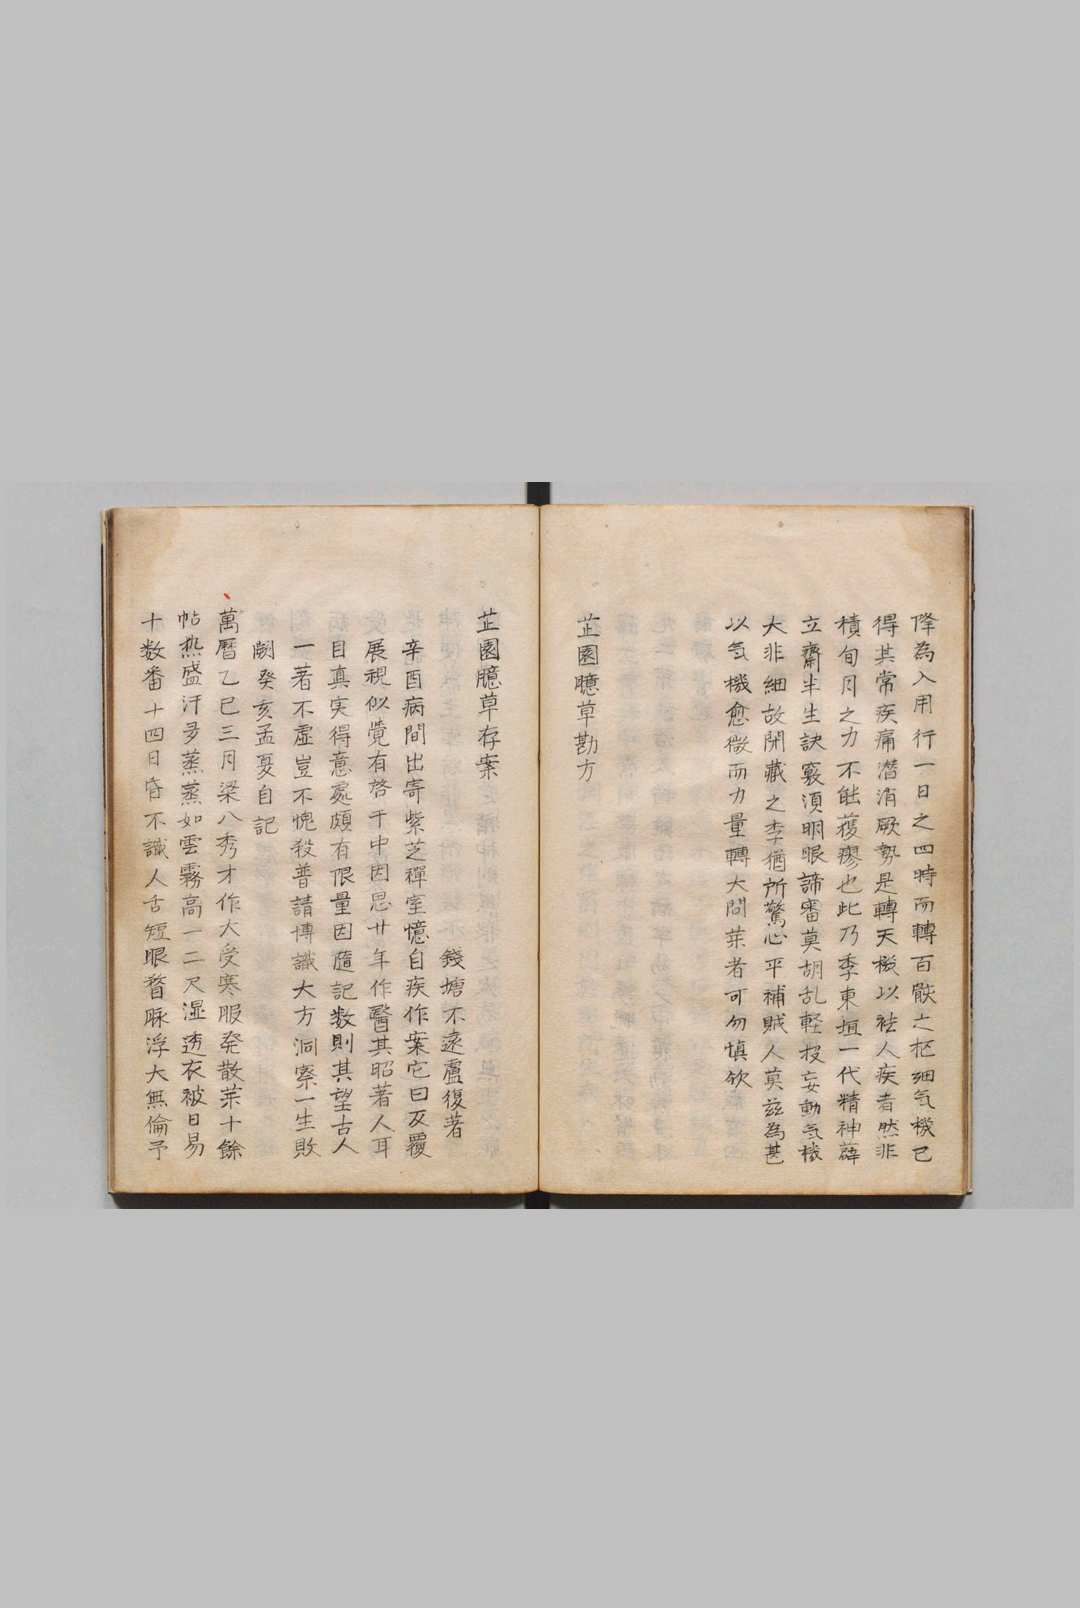 降為入用行一日之四時而轉百骸之枢細気機已
得其常疾痛潜消厥勢是轉天機以袪人疾者然非
積旬月之力不能獲瘳也此乃李東垣一代精神薜
立齋半生訣竅須明眼諦審莫胡乱軽投妄動気機
大非細故開藏之季猶所驚心平補賊人莫茲為甚
以気機愈微而力量轉大問藥者可勿慎欤
芷園臆草勘方
芷園臆草存案
錢塘不遠盧復著
辛酉病間出寄紫芝禪室憶自疾作案它日反覆
展視似覺有啓于中因思廿年作醫其昭著人耳
目真実得意處頗有限量因隨記数則其望古人
一著不虚豈不愧殺普請博識大方洞察一生敗
闕癸亥孟夏自記
萬暦乙巳三月梁八秀才作大受寒服発散藥十餘
帖热盛汗多蒸蒸如雲霧高一二尺湿透衣被日易
十数番十四日昏不識人舌短眼瞀脉浮大無倫予